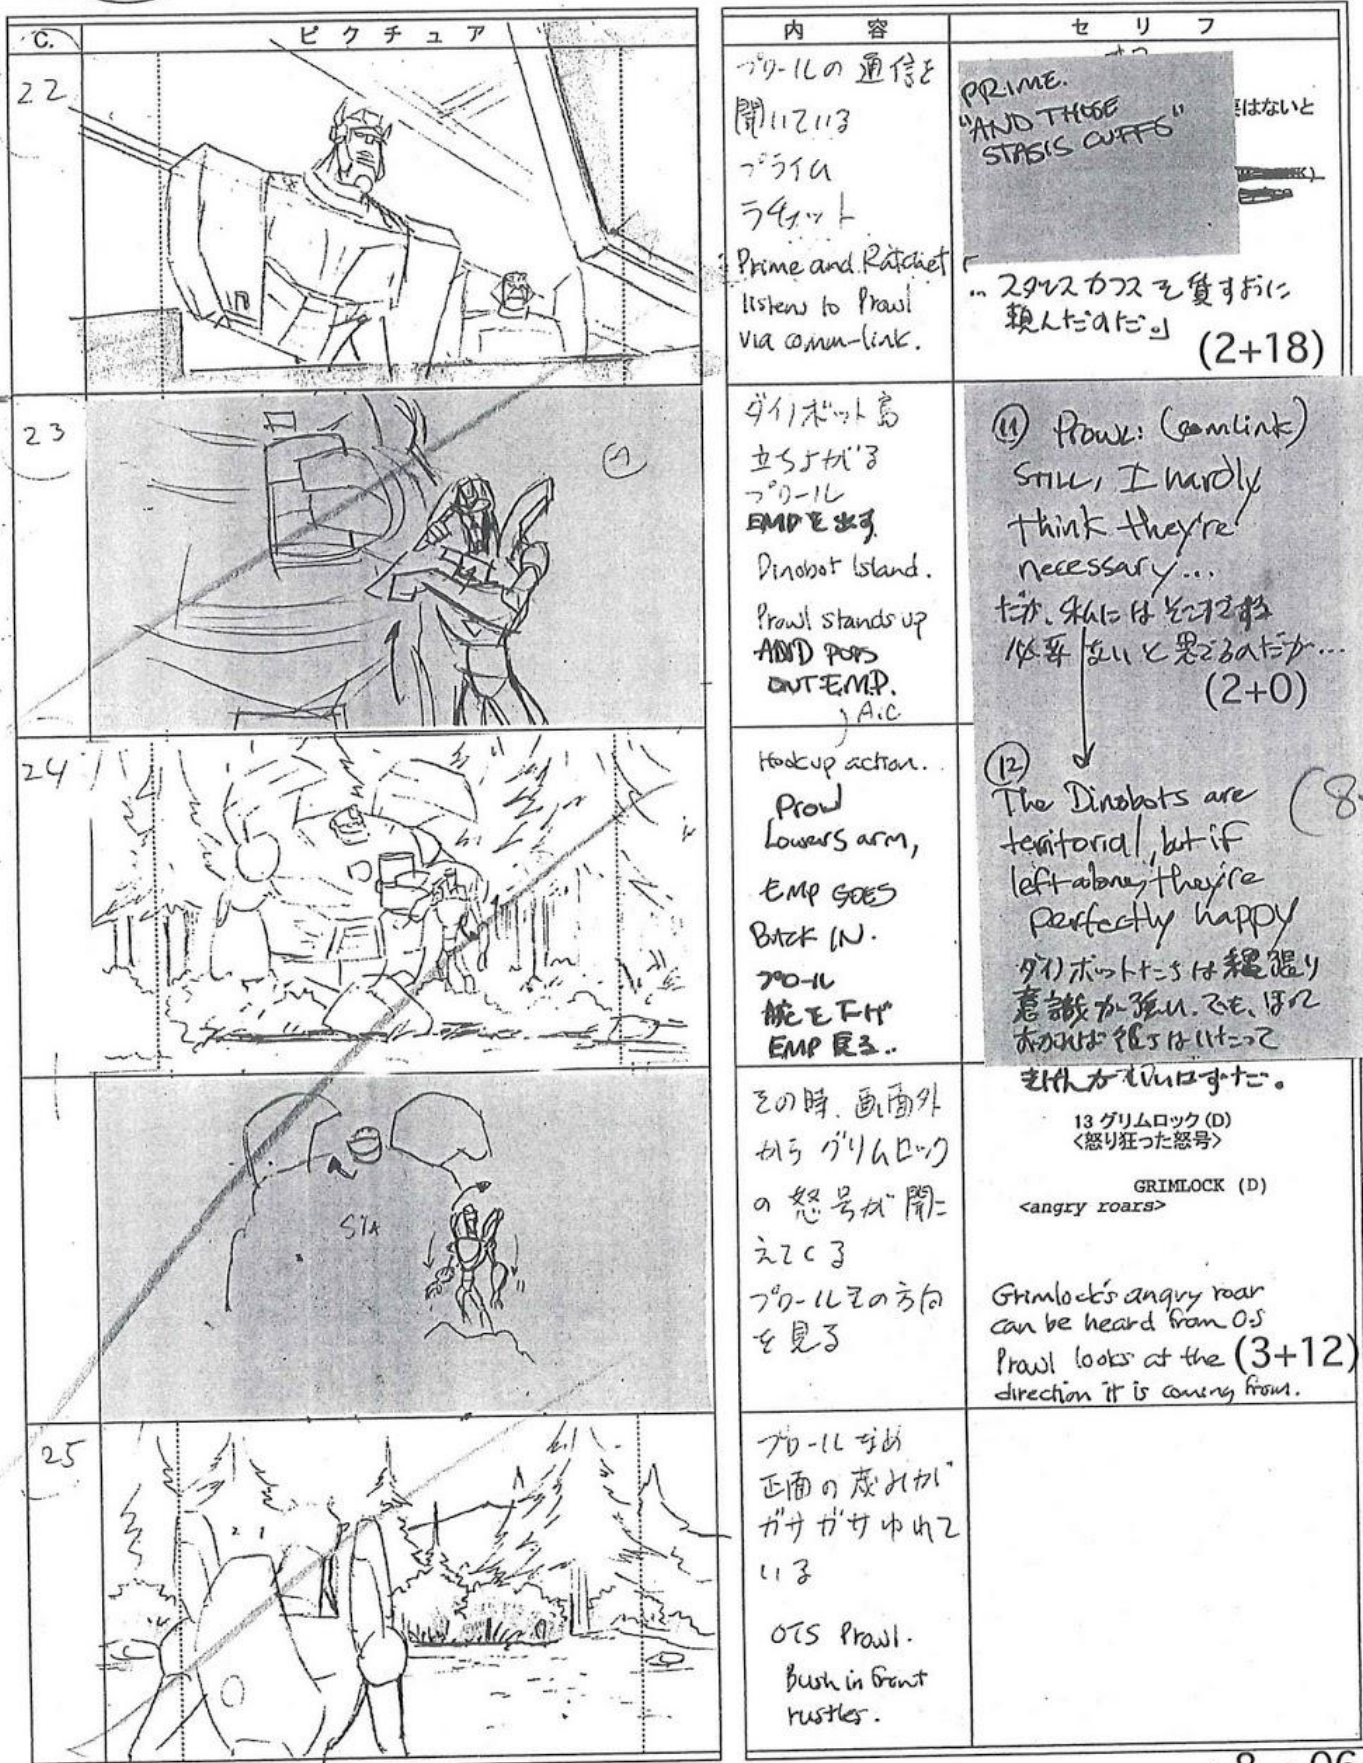 C.
ピクチュア
内容
セリフ
22
プロールの通信を
聞いている
プライム
ラチェット
Prime and Ratchet
listens to Prowl
via comm-link.
PRIME.
"AND THOSE
STASIS CUFFS"
はないと
「
… スタシスカフスを貸すように
頼んだのだ。」
(2+18)
23
ダイノボット島
立ち上がる
プロール
EMPを出す
Dinobot Island.
Prowl stands up
AND POPS
OUT E.M.P.
A.C
⑪ Prowl: (comlink)
STILL, I hardly
think they're
necessary...
だが、私にはそこまでする
必要ないと思えるのだが…
(2+0)
24
Hookup action.
Prowl
Lowers arm,
EMP GOES
BACK IN.
プロール
腕を下げ
EMP 戻る..
⑫
The Dinobots are
territorial, but if
left alone, they're
perfectly happy
(8
ダイノボットたちは縄張り
意識が強い。でも、ほって
おかれば彼らはいたって
きげんがいいはずだ。
S/A
その時、画面外
から グリムロック
の怒号が聞こ
えてくる
プロールその方向
を見る
13 グリムロック (D)
<怒り狂った怒号>
GRIMLOCK (D)
<angry roars>
Grimlock's angry roar
can be heard from O.S
Prowl looks at the
direction it is coming from.
(3+12)
25
プロールなめ
正面の茂みが
ガサガサゆれて
いる
OTS Prowl.
Bush in front
rustles.